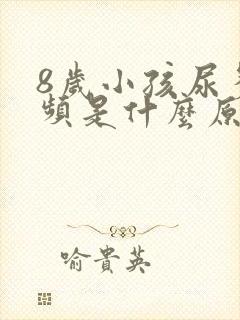 8歲小孩尿
頻是什麼原
喻貴英